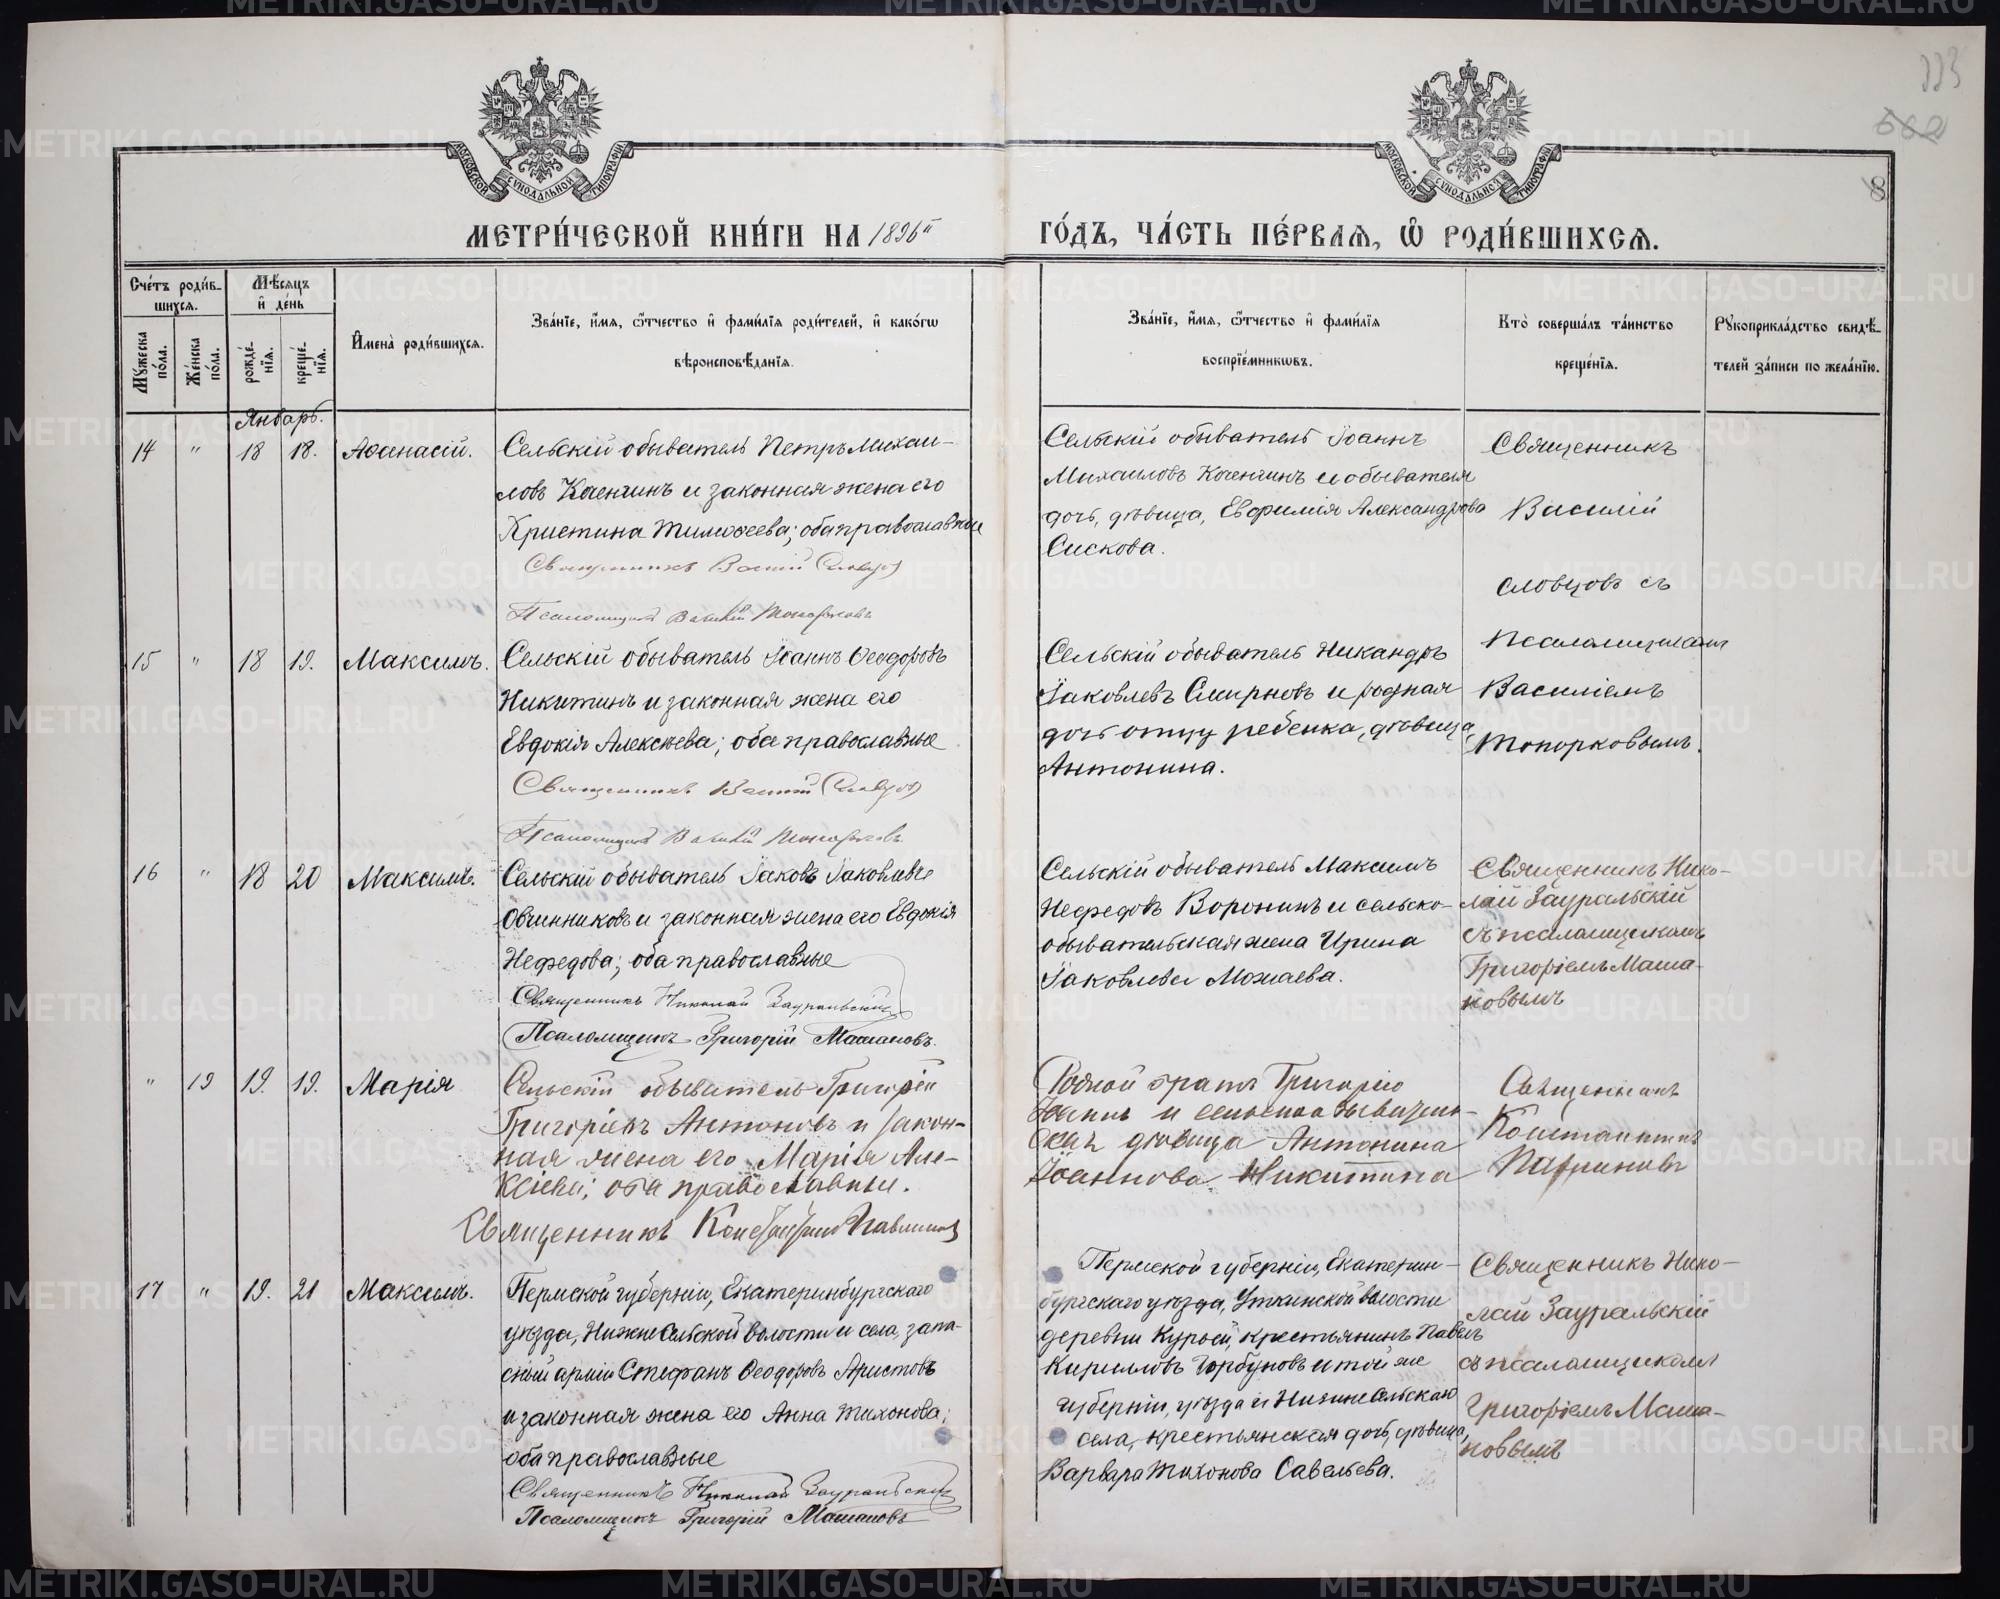 113
562
8
МОСКОВСКОЙ СУНОДАЛЬНОЙ ТИПОГРАФІИ
МОСКОВСКОЙ СУНОДАЛЬНОЙ ТИПОГРАФІИ
МЕТРИ́ЧЕСКОЙ КНИ́ГИ НА 1896й ГО́ДЪ, ЧА́СТЬ ПЕ́РВАѦ, Ѡ҆ РОДИ́ВШИХСѦ.
Сче́тъ роди́в-
шихсѧ.
Мꙋ́жеска по́ла.
Же́нска по́ла.
Мѣ́сѧцъ
и҆ де́нь
рожде́-
нїѧ.
креще́-
нїѧ.
И҆мена̀ роди́вшихсѧ.
Зва́нїе, и҆́мѧ, ѻ҆́тчество и҆ фами́лїѧ роди́телей, и҆ како́гѡ
вѣроисповѣ́данїѧ.
Зва́нїе, и҆́мѧ, ѻ҆́тчество и҆ фами́лїѧ
воспрїе́мникѡвъ.
Кто̀ соверша́лъ та́инство
креще́нїѧ.
Рꙋкоприкла́дство свидѣ́-
телей за́писи по жела́нїю.
Январь.
14 " 18 18. Аѳанасій.
Сельскій обыватель Петръ Михаи-
ловъ Коенчинъ и законная жена его
Христина Тимоѳеева; оба православные
Священникъ Василій Словцов
Псаломщик Василій Топорковъ
Сельскій обыватель Іоаннъ
Михаиловъ Коенчинъ и обывателя
дочь, дѣвица, Евфимія Александрова
Сискова.
Священникъ
Василій
Словцовъ съ
Псаломщикомъ
Василіемъ
Топорковымъ.
15 " 18 19. Максимъ.
Сельскій обыватель Іоаннъ Ѳеодоровъ
Никитинъ и законная жена его
Евдокія Алексѣева; оба православные
Священникъ Василій Словцов
Псаломщик Василій Топорковъ
Сельскій обыватель Никандръ
Іаковлевъ Смирновъ и родная
дочь отцу ребенка, дѣвица,
Антонина.
16 " 18 20 Максимъ.
Сельскій обыватель Іаковъ Іаковлевъ
Овчинниковъ и законная жена его Евдокія
Нефедова; оба православные
Священникъ Николай Зауральскій
Псаломщикъ Григорій Машановъ.
Сельскій обыватель Максимъ
Нефедовъ Воронинъ и сельско-
обывательская жена Ирина
Іаковлева Можаева.
Священникъ Нико-
лай Зауральскій
съ псаломщикомъ
Григоріемъ Маша-
новымъ
" 19 19. 19. Марія
Сельскій обыватель Григорій
Григоріевъ Антоновъ и закон-
ная жена его Марія Але-
ксіева; оба православные.
Священникъ Константинъ Павлинов
Родной братъ Григорію
Іоаннъ и сельско обыватель-
ская дѣвица Антонина
Іоаннова Никитина
Священникъ
Константинъ
Павлиновъ
17 " 19. 21 Максимъ.
Пермской губерніи, Екатеринбургскаго
уѣзда, Нижнесельской волости и села, запа-
сный арміи Стефанъ Ѳеодоровъ Аристовъ
и законная жена его Анна Тихонова;
оба православные
Священникъ Николай Зауральскій
Псаломщикъ Григорій Машановъ
Пермской губерніи, Екатерин-
бургскаго уѣзда, Уткинской волости
деревни Курьей, крестьянинъ Павелъ
Кирилловъ Горбуновъ и той же
губерніи, уѣзда и Нижнесельскаго
села, крестьянская дочь, дѣвица,
Варвара Тихонова Савельева.
Священникъ Нико-
лай Зауральскій
съ псаломщикомъ
Григоріемъ Маша-
новымъ
METRIKI.GASO-URAL.RU